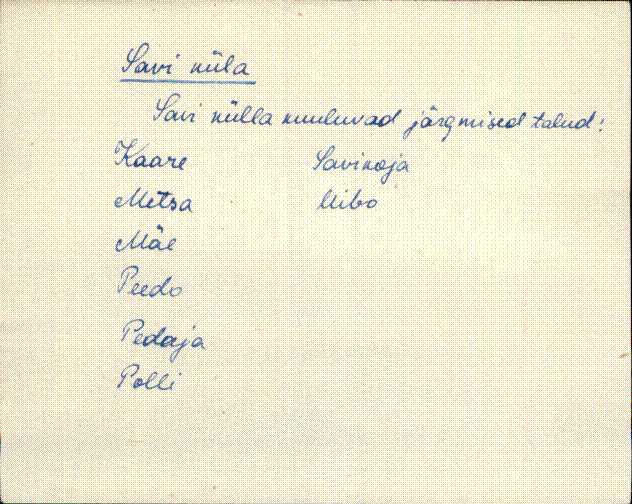 Savi küla
Savi külla kuuluvad järgmised talud:
Kaare Savikoja
Metsa Uibo
Mäe
Peedo
Pedaja
Polli